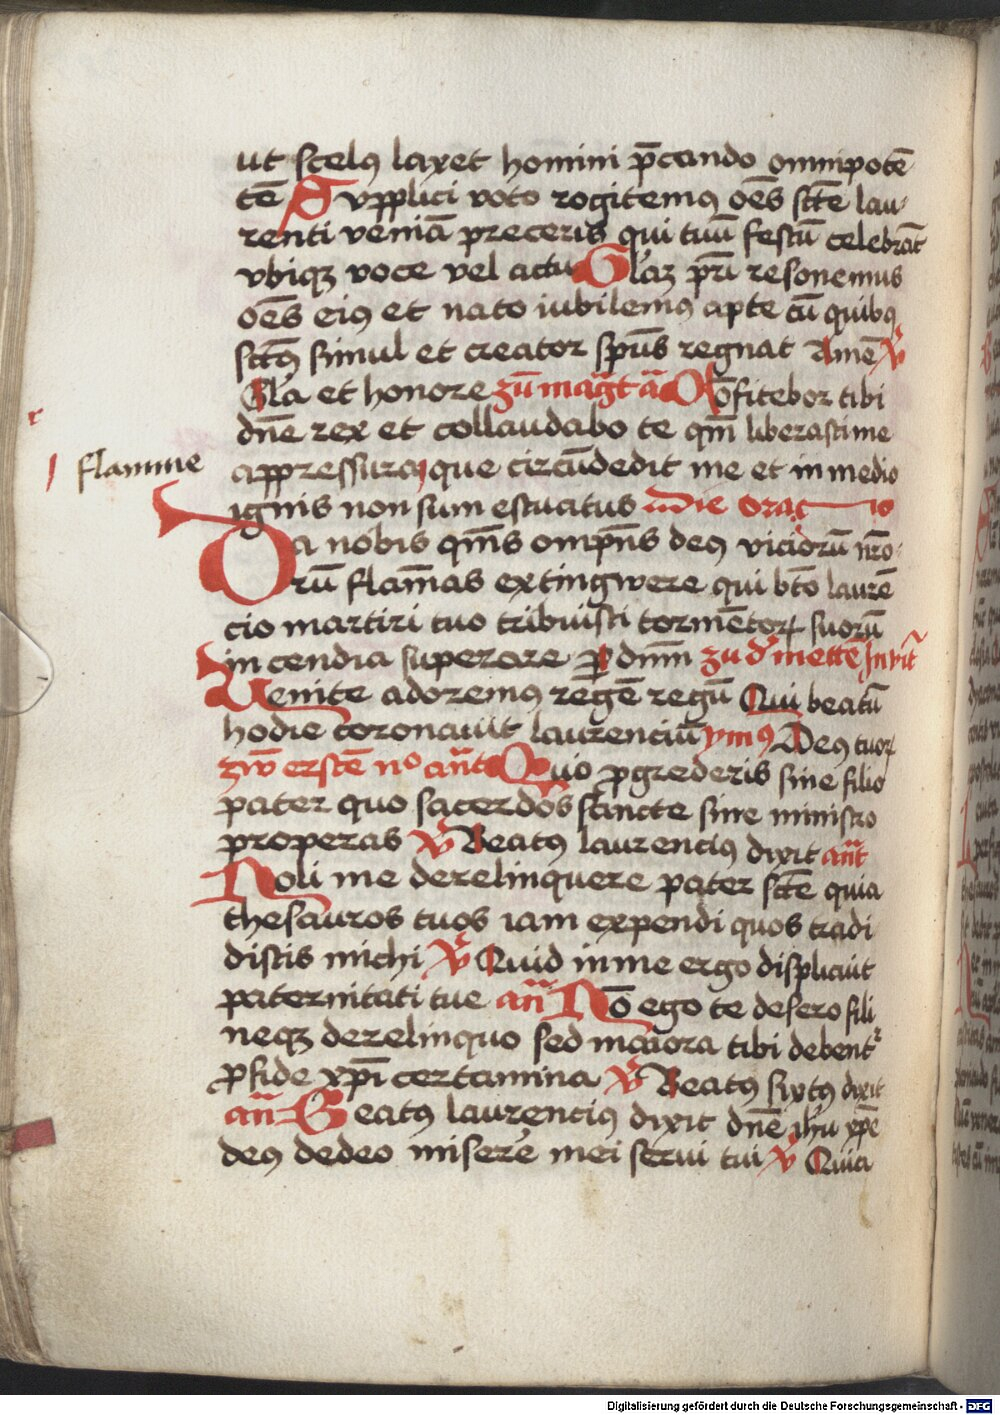 ut scelꝰ laxet homini p̄cando omnipotē
tē Supplici voto rogitemꝰ oēs sctē lau
renti veniā preceris qui tuū festū celebrāt
vbiqꝫ voce vel actu Glaꝫ pr̄i resonemus
oēs eiꝰ et nato iubilemꝰ apte cū quibꝰ
sctꝰs simul et creator sp̄us regnat Amē ℣
Gl̄a et honore zū mag̅t a̅ Cōfitebor tibi
dn̄e rex et collaudabo te qm̄ liberasti me
flamme appressura que circūdedit me et in medio
ignis non sum estuatus die oracio
Da nobis qm̄s omp̄ns deꝰ viciorū nr̄o
rū flam̄as extingwere qui bt̄o laurē
cio martiri tuo tribuisti tormētoꝝ suorū
in cendia superare ꝑ dnm̄ zu dˀ mettē Inuit̄
Venite adoremꝰ regē regū Qui beatū
hodie coronauit laurenciū ymꝰ Deꝰ tuoꝝ
zw̄ erstē nº an̄t Quo ꝓgrederis sine filio
pater quo sacerdōs sancte sine ministro
properas ℣ Beatꝰ laurenciꝰ dixit an̄t
Noli me derelinquere pater sctē quia
thesauros tuos iam expendi quos tradi
distis michi ℣ Quid in me ergo displicuit
paternitati tue an̄ Nō ego te desero fili
neqꝫ derelinquo sed maiora tibi debentˀ
ꝓ fide xp̄i certamina ℣ Beatꝰ sixtꝰ dixit
an̄ Beatꝰ laurenciꝰ dixit dn̄e ih̄u xp̄e
deꝰ de deo miserē mei serui tui ℣ Quia
Digitalisierung gefördert durch die Deutsche Forschungsgemeinschaft - DFG